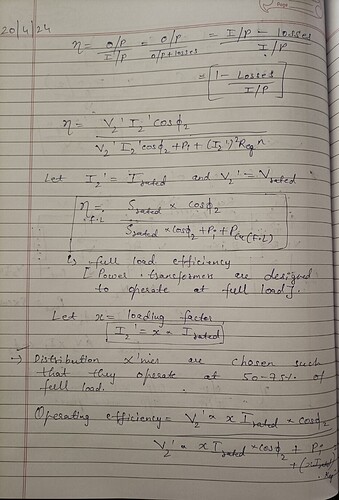 Page
20/4/24
η = O/P / I/P = O/P / O/P + losses = I/P - losses / I/P
= [1 - Losses / I/P]
η = V₂' I₂' cosϕ₂ / V₂' I₂' cosϕ₂ + Pi + (I₂')² Reqⁿ
Let I₂' = Irated and V₂' = Vrated
η F.L = Srated × cosϕ₂ / Srated × cosϕ₂ + Pi + Pcu(F.L)
↳ full load efficiency
[Power transformers are designed
to operate at full load].
Let x = loading factor
I₂' = x × Irated
→ Distribution x'mer are chosen such
that they operate at 50-75% of
full load.
Operating efficiency = V₂' × x Irated × cosϕ₂
V₂' × x Irated × cosϕ₂ + Pi
+ (x Irated)²